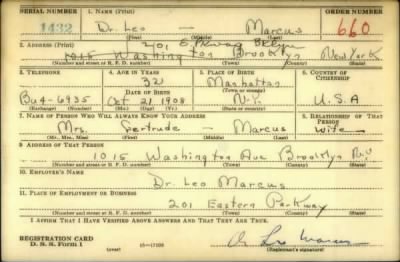 SERIAL NUMBER 1. NAME (Print) ORDER NUMBER
1432 Dr. Leo — Marcus 660
(First) (Middle) (Last)
2. ADDRESS (Print) 201 E. Pkway Bklyn
1015 Washington Brooklyn New York
(Number and street or R. F. D. number) (Town) (County) (State)
3. TELEPHONE 4. AGE IN YEARS 5. PLACE OF BIRTH 6. COUNTRY OF CITIZENSHIP
32 Manhattan
DATE OF BIRTH (Town or county)
BU4-6935 Oct 21 1908 N.Y. U.S.A
(Exchange) (Number) (Mo.) (Day) (Yr.) (State or country)
7. NAME OF PERSON WHO WILL ALWAYS KNOW YOUR ADDRESS 8. RELATIONSHIP OF THAT PERSON
Mrs. Gertrude — Marcus wife
(Mr., Mrs., Miss) (First) (Middle) (Last)
9. ADDRESS OF THAT PERSON
1015 Washington Ave Brooklyn N.Y
(Number and street or R. F. D. number) (Town) (County) (State)
10. EMPLOYER'S NAME
Dr. Leo Marcus
11. PLACE OF EMPLOYMENT OR BUSINESS
201 Eastern Parkway
(Number and street or R. F. D. number) (Town) (County) (State)
I AFFIRM THAT I HAVE VERIFIED ABOVE ANSWERS AND THAT THEY ARE TRUE.
REGISTRATION CARD
D. S. S. Form 1 16—17105 Leo Marcus
(Registrant's signature)